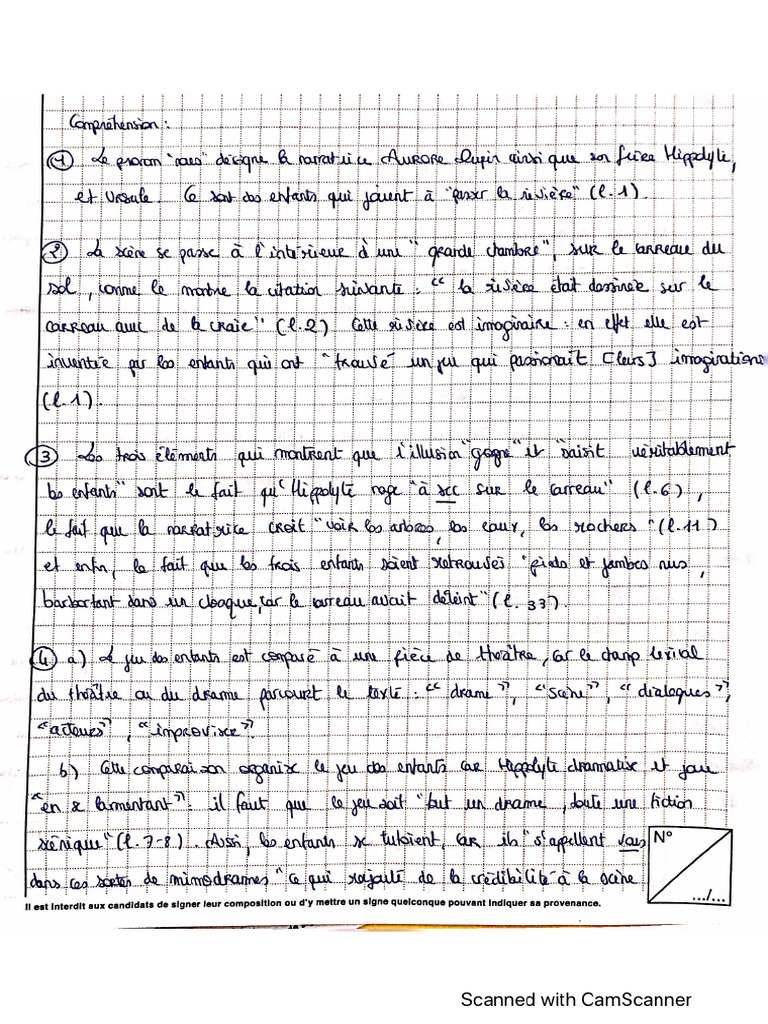 Compréhension :
① Le pronom "nous" désigne la narratrice AURORE Dupin ainsi que son frère Hippolyte,
et Ursule. Ce sont des enfants qui jouent à "passer la rivière" (l. 1).
② La scène se passe à l'intérieur d'une "grande chambre", sur le carreau du
sol, comme le montre la citation suivante : "la rivière était dessinée sur le
carreau avec de la craie" (l. 2). Cette rivière est imaginaire : en effet elle est
inventée par les enfants qui ont "trouvé un jeu qui passionait [leurs] imaginations
(l. 1).
③ Les trois éléments qui montrent que l'illusion "gagne" et "saisit véritablement
les enfants" sont le fait qu'Hippolyte nage "à sec sur le carreau" (l. 6),
le fait que la narratrice croit "voir les arbres, les eaux, les rochers" (l. 11)
et enfin, le fait que les trois enfants soient retrouvés "pieds et jambes nus,
barbotant dans un cloaque, car le carreau avait déteint" (l. 33).
④ a) Le jeu des enfants est comparé à une pièce de théâtre, car le champ lexical
du théâtre ou du drame parcourt le texte : "drame", "scène", "dialogues",
"acteurs", "improvisée".
b) Cette comparaison organise le jeu des enfants car Hippolyte dramatise et joue
"en se lamentant" : il faut que le jeu soit "tout un drame, toute une fiction
scénique" (l. 7-8). Aussi, les enfants se tutoient, car ils "s'appellent vous
dans ces sortes de mimodrames" ce qui rajoute de la crédibilité à la scène
N°
.../...
Il est interdit aux candidats de signer leur composition ou d'y mettre un signe quelconque pouvant indiquer sa provenance.
Scanned with CamScanner